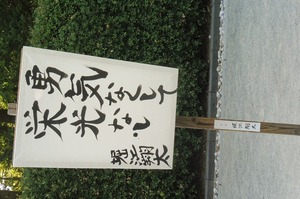 勇気なくして
栄光なし
堀江翔太